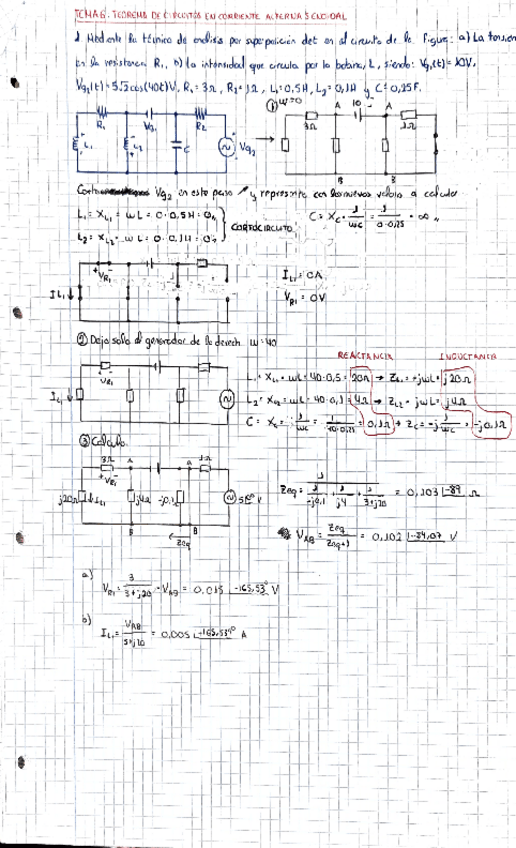 TEMA 6: TEOREMAS DE CIRCUITOS EN CORRIENTE ALTERNA SENOIDAL
1. Mediante la técnica de análisis por superposición det en el circuito de la figura: a) La tensión
en la resistencia R₁, b) la intensidad que circula por la bobina L, siendo: Vg₁(t) = 10V,
Vg₂(t) = 5√2 cos(40t) V, R₁ = 3Ω, R₂ = 1Ω, L₁ = 0,5H, L₂ = 0,1H y C = 0,25F.
① W=0
R₁ Vg₁ R₂
L₁ L₂ C Vg₂
3Ω A 10 A 1Ω
B B
Vg₂ en este paso y represento con los nuevos valores a calcular
L₁ = X_L₁ = ωL = 0·0,5H = 0
L₂ = X_L₂ = ωL = 0·0,1H = 0
CORTOCIRCUITO
C = X_C = 1/ωC = 1/0·0,25 = ∞
+ V_R1 -
I_L1 ↓
I_L1 = 0A
V_R1 = 0V
② Dejo solo el generador de la derech. W=40
REACTANCIA INDUCTANCIA
+ V_R1 -
I_L1 ↓
L₁ = X_L₁ = ωL = 40·0,5 = 20Ω → Z_L1 = jωL = j20Ω
L₂ = X_L2 = ωL = 40·0,1 = 4Ω → Z_L2 = jωL = j4Ω
C = X_C = 1/ωC = 1/40·0,25 = 0,1Ω → Z_C = -j 1/ωC = -j0,1Ω
③ Calculo
3Ω A A 1Ω
+ V_R1 -
j20Ω ↓ I_L1 j4Ω -j0,1 5|0° V
B B
Zeq
Zeq = 1 / (1/-j0,1 + 1/j4 + 1/3+j20) = 0,103 |-89 Ω
V_AB = Zeq / Zeq+1 = 0,102 |-84,07 V
a)
V_R1 = 3 / 3+j20 · V_AB = 0,015 |-165,53° V
b)
I_L1 = V_AB / 3+j20 = 0,005 |-165,53° A